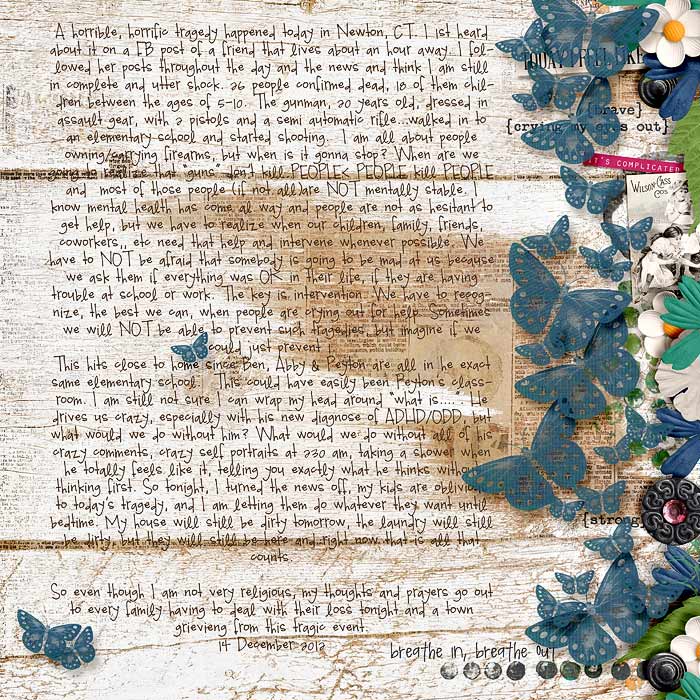 A horrible, horrific tragedy happened today in Newton, CT. I 1st heard
about it on a FB post of a friend that lives about an hour away. I fol-
lowed her posts throughout the day and the news and think I am still
in complete and utter shock. 26 people confirmed dead, 18 of them chil-
dren between the ages of 5-10. The gunman, 20 years old, dressed in
assault gear, with 2 pistols and a semi automatic rifle...walked in to
an elementary school and started shooting. I am all about people
owning/carrying firearms, but when is it gonna stop? When are we
going to realize that "guns" don't kill PEOPLE< PEOPLE kill PEOPLE
and most of those people (if not all)are NOT mentally stable. I
know mental health has come al way and people are not as hesitant to
get help, but we have to realize when our children, family, friends,
coworkers,, etc need that help and intervene whenever possible. We
have to NOT be afraid that somebody is going to be mad at us because
we ask them if everything was OK in their life, if they are having
trouble at school or work. The key is intervention. We have to recog-
nize, the best we can, when people are crying out for help. Sometimes
we will NOT be able to prevent such tragedies, but imagine if we
could just prevent
This hits close to home since Ben, Abby & Peyton are all in he exact
same elementary school. This could have easily been Peyton's class-
room. I am still not sure I can wrap my head around "what is..... He
drives us crazy, especially with his new diagnose of ADHD/ODD, but
what would we do without him? What would we do without all of his
crazy comments, crazy self portraits at 230 am, taking a shower when
he totally feels like it, telling you exactly what he thinks without
thinking first. So tonight, I turned the news off, my kids are oblivious
to today's tragedy, and I am letting them do whatever they want until
bedtime. My house will still be dirty tomorrow, the laundry will still
be dirty, but they will still be here and right now that is all that
counts.
So even though I am not very religious, my thoughts and prayers go out
to every family having to deal with their loss tonight and a town
grievieng from this tragic event.
14 December 2012
breathe in, breathe out
TODAY I FEEL LIKE
{brave}
{crying my eyes out}
IT'S COMPLICATED
WILSON CASS
COS
{strong}